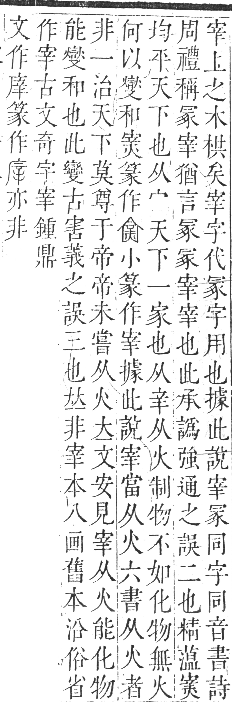 宰上之木栱矣宰字代冢字用也據此說宰冢同字同音書詩
周禮稱冢宰猶言冢冢宰宰也此承譌強通之誤二也精薀
均平天下也从宀天下一家也从辛从火制物不如化物無火
何以變和篆作小篆作宰據此說宰當从火六書从火者
非一治天下莫尊于帝帝未嘗从火大文安見宰从火能化物
能變和也此變古害義之誤三也𡘋非宰本八画舊本沿俗省
作宰古文奇字宰鍾鼎
文作𢊁篆作𢊁亦非